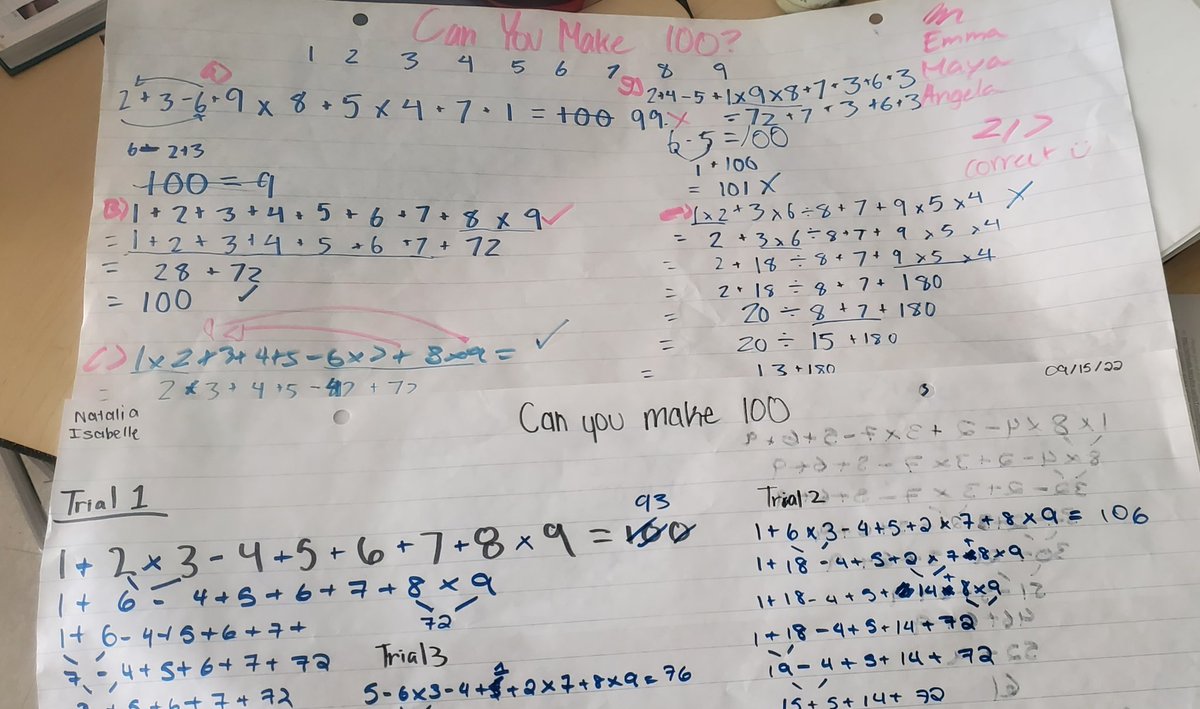 Can You Make 100?
Emma
Maya
Angela
1 2 3 4 5 6 7 8 9
A)
2 + 3 - 6 + 9 × 8 + 5 × 4 + 7 + 1 = 100 99 ×
6 - 2+3
100 = 9
B) 1 + 2 + 3 + 4 + 5 + 6 + 7 + 8 × 9 ✓
= 1 + 2 + 3 + 4 + 5 + 6 + 7 + 72
= 28 + 72
= 100 ✓
C) 1 × 2 + 3 + 4 + 5 - 6 × 7 + 8 × 9 = ✓
= 2 × 3 + 4 + 5 - 42 + 72
2+4-5+1×9×8+7+3+6+3
= 72 + 7 + 3 + 6 + 3
6-5 = 100
1 + 100
= 101 X
correct
1×2 + 3 × 6 ÷ 8 + 7 + 9 × 5 × 4 X
= 2 + 3 × 6 ÷ 8 + 7 + 9 × 5 × 4
= 2 + 18 ÷ 8 + 7 + 9 × 5 × 4
= 2 + 18 ÷ 8 + 7 + 180
= 20 ÷ 8 + 7 + 180
= 20 ÷ 15 + 180
= 13 + 180
09/15/22
Natalia
Isabelle
Can you make 100
Trial 1
1 + 2 × 3 - 4 + 5 + 6 + 7 + 8 × 9 = 100 93
1 + 6 - 4 + 5 + 6 + 7 + 8 × 9
72
1 + 6 - 4 + 5 + 6 + 7 +
7 - 4 + 5 + 6 + 7 + 72
+ 5 + 6 + 7 + 72
Trial 3
5 - 6 × 3 - 4 + 1 + 2 × 7 + 8 × 9 = 76
Trial 2
1 + 6 × 3 - 4 + 5 + 2 × 7 + 8 × 9 = 106
1 + 18 - 4 + 5 + 2 × 7 + 8 × 9
1 + 18 - 4 + 5 + 14 + 8 × 9
1 + 18 - 4 + 5 + 14 + 72
19 - 4 + 5 + 14 + 72
15 + 5 + 14 + 72